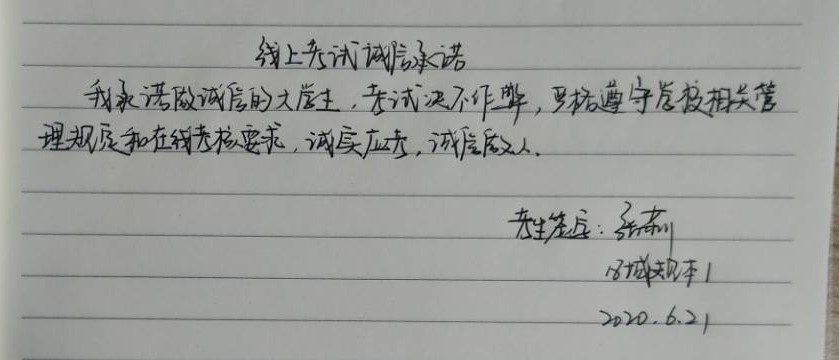 线上考试诚信承诺
我承诺做诚信的大学生，考试决不作弊，严格遵守学校相关管
理规定和在线考核要求，诚实应考，诚信做人。
考生签名：张莉
18城规本1
2020.6.21